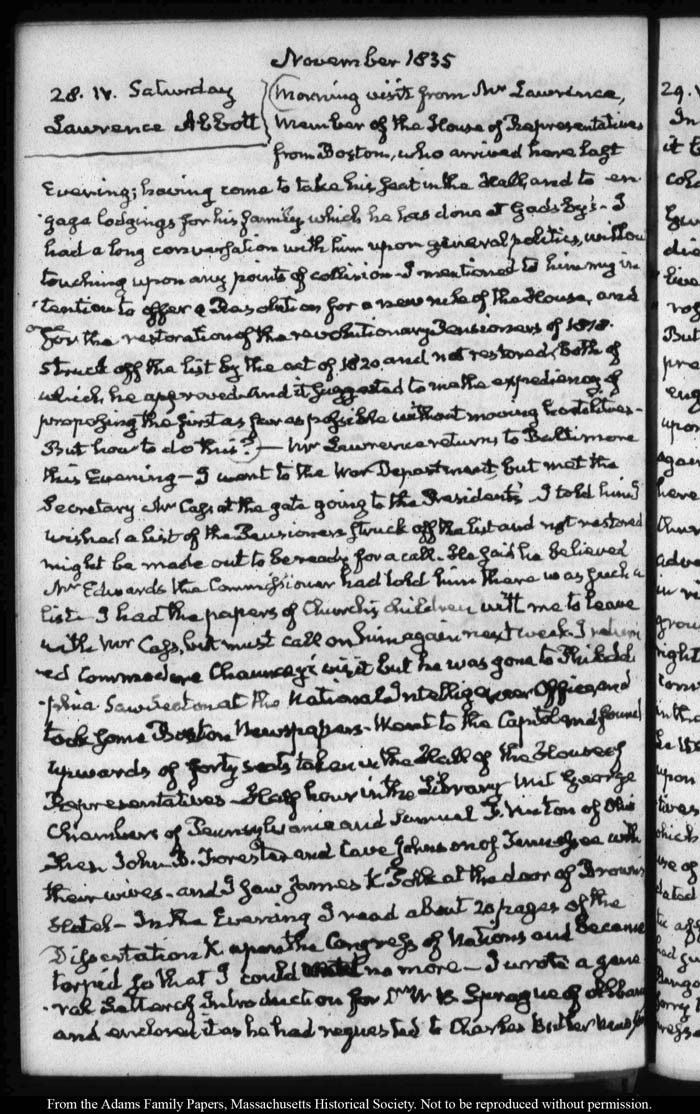 November 1835
28. IV. Saturday
Lawrence Abbott
Morning visit from Mr Lawrence,
Member of the House of Representatives
from Boston, who arrived here last
Evening; having come to take his seat in the Hall, and to en-
gage lodgings for his family which he has done at Gadsby's. I
had a long conversation with him upon general politics, without
touching upon any points of collision. I mentioned to him my in-
tention to offer a Resolution for a new rule of the House, and
for the restoration of the revolutionary Pensioners of 1818.
struck off the list by the act of 1820. and not restored, both of
which he approved. And it suggested to me the expediency of
proposing the first as far as possible without moving hostilities-
But how to do this?— Mr Lawrence returns to Baltimore
this Evening— I went to the War Department, but met the
Secretary Mr Cass at the gate going to the President's. I told him I
wished a list of the Pensioners struck off the list and not restored
might be made out to be ready for a call. He said he believed
Mr Edwards the Commissioner had told him there was such a
list. I had the papers of Church's children with me to leave
with Mr Cass, but must call on him again next week. I return-
ed Commodore Chauncey's visit but he was gone to Philadel-
phia. Saw Seaton at the National Intelligencer Office, and
took some Boston Newspapers. Went to the Capitol and found
upwards of forty seats taken in the Hall of the House of
Representatives. Half hour in the Library. Met George
Chambers of Pennsylvania and Samuel F. Vinton of Ohio
then John B. Forester and Cave Johnson of Tennessee with
their wives. and I saw James K Polk at the door of Brown's
Hotel— In the Evening I read about 20 pages of the
Dissertation K upon the Congress of Nations and became
torpid so that I could no more— I wrote a gene-
ral Letter of Introduction for Dr W. B. Sprague of Albany
and enclosed it as he had requested to Charles Butler
29.
In
it
But
upon
again
here
From the Adams Family Papers, Massachusetts Historical Society. Not to be reproduced without permission.